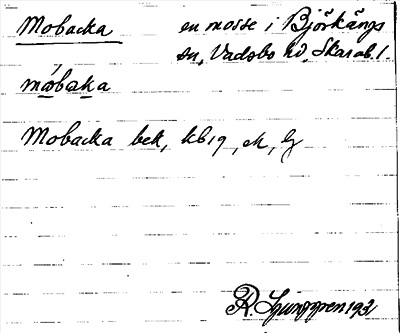 Mobacka en mosse i Björkängs
sn, Vadsbo hd, Skarab. l.
mɷ́baka
Mobacka bek, kb19, ek, lz
R. Ljunggren 1931